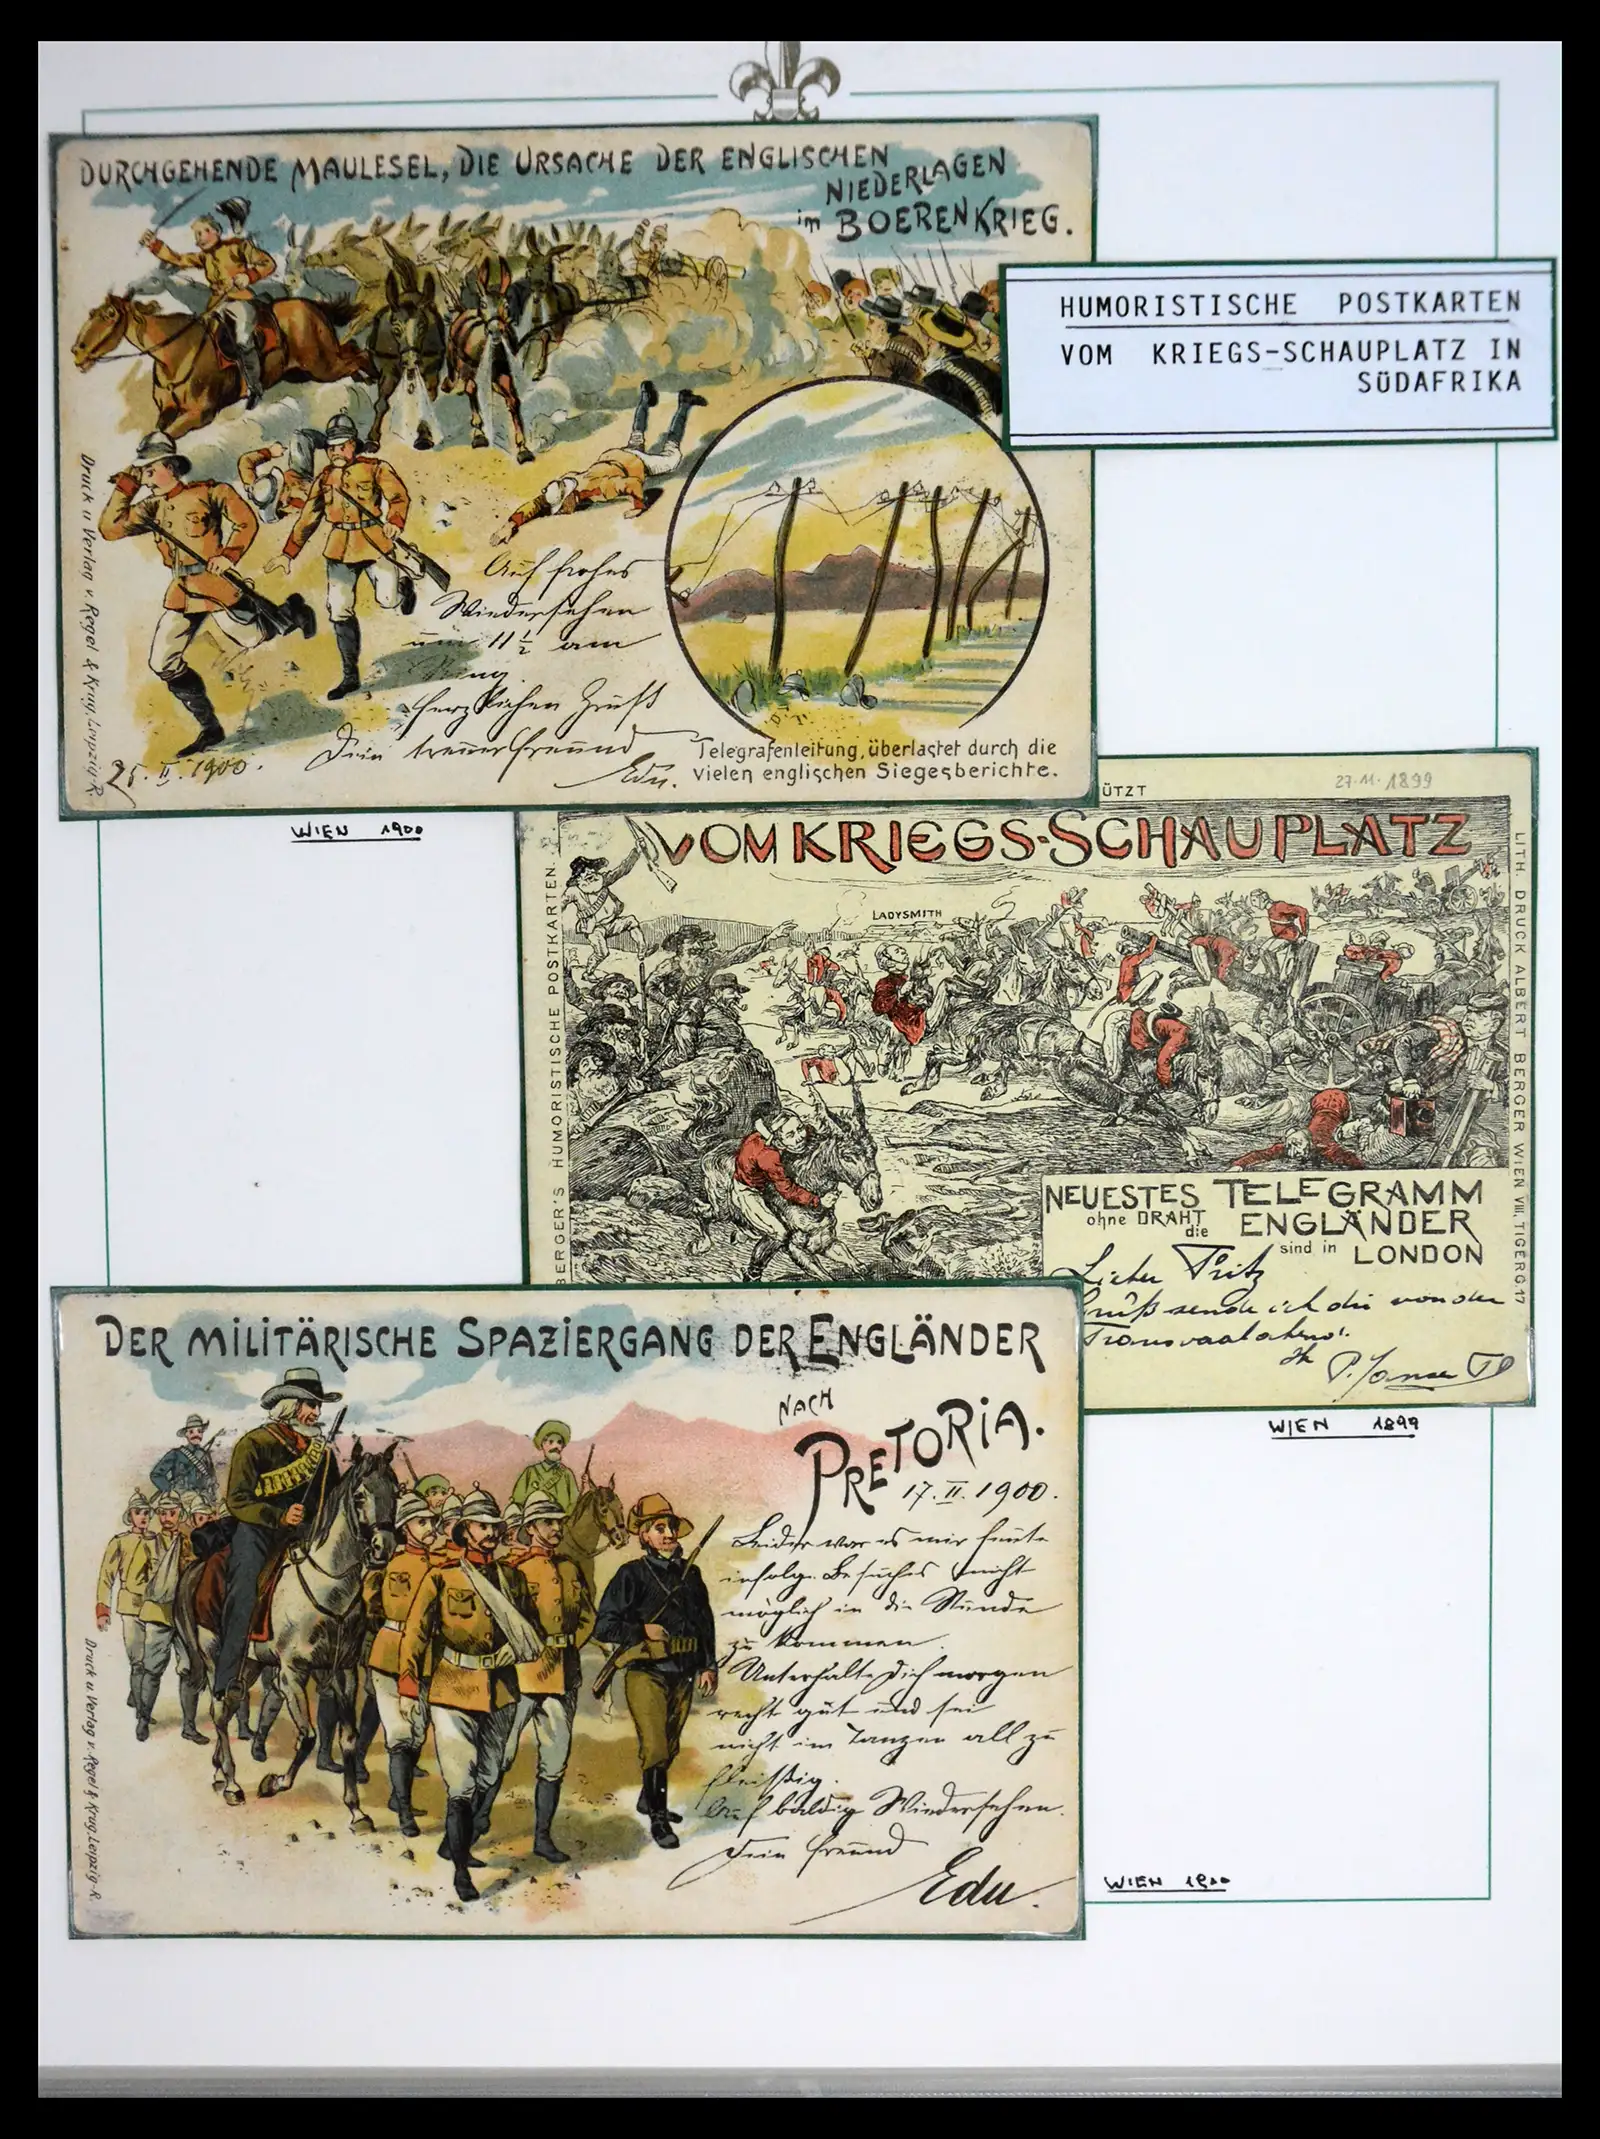 DURCHGEHENDE MAULESEL, DIE URSACHE DER ENGLISCHEN
NIEDERLAGEN
im BOERENKRIEG.
Druck u Verlag v. Regel & Krug, Leipzig-R.
Auf frohes
Wiedersehen
um 11 ½ am
Ring.
Herzlichen Gruß
Dein treuer Freund
Edu.
25. II. 1900.
Telegrafenleitung, überlastet durch die
vielen englischen Siegesberichte.
HUMORISTISCHE POSTKARTEN
VOM KRIEGS-SCHAUPLATZ IN
SÜDAFRIKA
WIEN 1900
ÜTZT
27.11.1899
VOM KRIEGS-SCHAUPLATZ
LADYSMITH
BERGER'S HUMORISTISCHE POSTKARTEN.
LITH. DRUCK ALBERT BERGER WIEN VIII, TIGERG 17
NEUESTES TELEGRAMM
ohne DRAHT
die ENGLÄNDER
sind in LONDON
Lieber Fritz
Gruß sende ich dir von der
WIEN 1899
DER MILITÄRISCHE SPAZIERGANG DER ENGLÄNDER
NACH
PRETORIA.
17. II. 1900.
Leider war es mir heute
infolge Besuches nicht
möglich in die Stunde
zu kommen.
Unterhalte Dich morgen
recht gut und sei
nicht im Tanzen all zu
fleißig.
Auf baldig Wiedersehen.
Dein Freund
Edu.
Druck u Verlag v. Regel & Krug, Leipzig-R.
WIEN 1900